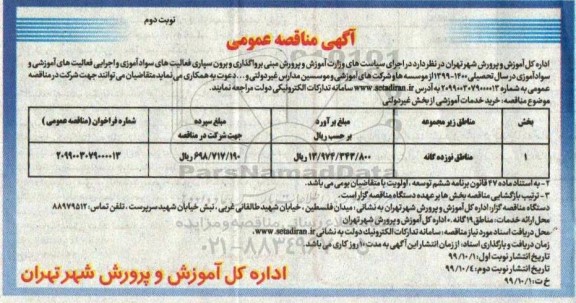 نوبت دوم
آگهی مناقصه عمومی
اداره کل آموزش و پرورش شهر تهران در نظر دارد در اجرای سیاست های وزارت آموزش و پرورش مبنی بر واگذاری و برون سپاری فعالیت های سوادآموزی و اجرایی فعالیت های آموزشی و
سوادآموزی در سال تحصیلی ۱۴۰۰-۱۳۹۹ از موسسه ها و شرکت های آموزشی و موسسین مدارس غیردولتی و... دعوت به همکاری می نماید متقاضیان می توانند جهت شرکت در مناقصه
عمومی به شماره ۲۰۹۹۰۰۳۰۷۹۰۰۰۰۱۳ به آدرس www.setadiran.ir سامانه تدارکات الکترونیکی دولت مراجعه نمایند.
موضوع مناقصه: خرید خدمات آموزشی از بخش غیردولتی
بخش مناطق زیر مجموعه مبلغ برآورد بر حسب ریال مبلغ سپرده جهت شرکت در مناقصه شماره فراخوان (مناقصه عمومی)
۱ مناطق نوزده گانه ۱۳/۹۷۴/۳۴۳/۸۰۰ ریال ۶۹۸/۷۱۷/۱۹۰ ریال ۲۰۹۹۰۰۳۰۷۹۰۰۰۰۱۳
۲- به استناد ماده ۲۷ قانون برنامه ششم توسعه، اولویت با متقاضیان بومی می باشد.
۳- ترتیب بازگشایی مناقصه بخش ها بر عهده دستگاه مناقصه گزار است.
دستگاه مناقصه گزار: اداره کل آموزش و پرورش شهر تهران به نشانی: میدان فلسطین، خیابان شهید طالقانی غربی، نبش خیابان شهید سرپرست، تلفن تماس: ۸۸۹۷۹۵۱۲
محل ارائه خدمات: مناطق ۱۹ گانه - اداره کل آموزش و پرورش شهر تهران
محل دریافت اسناد مورد نیاز مناقصه: سامانه تدارکات الکترونیک دولت به نشانی www.setadiran.ir.
زمان دریافت و بارگذاری اسناد: از زمان انتشار این آگهی به مدت ۱۰ روز کاری می باشد
تاریخ انتشار نوبت اول: ۹۹/۱۰/۱
تاریخ انتشار نوبت دوم: ۹۹/۱۰/۴
خ ت: ۹۹/۱۰/۱
اداره کل آموزش و پرورش شهر تهران
ParsNamadData
۰۲۱-۸۸۳۴۹